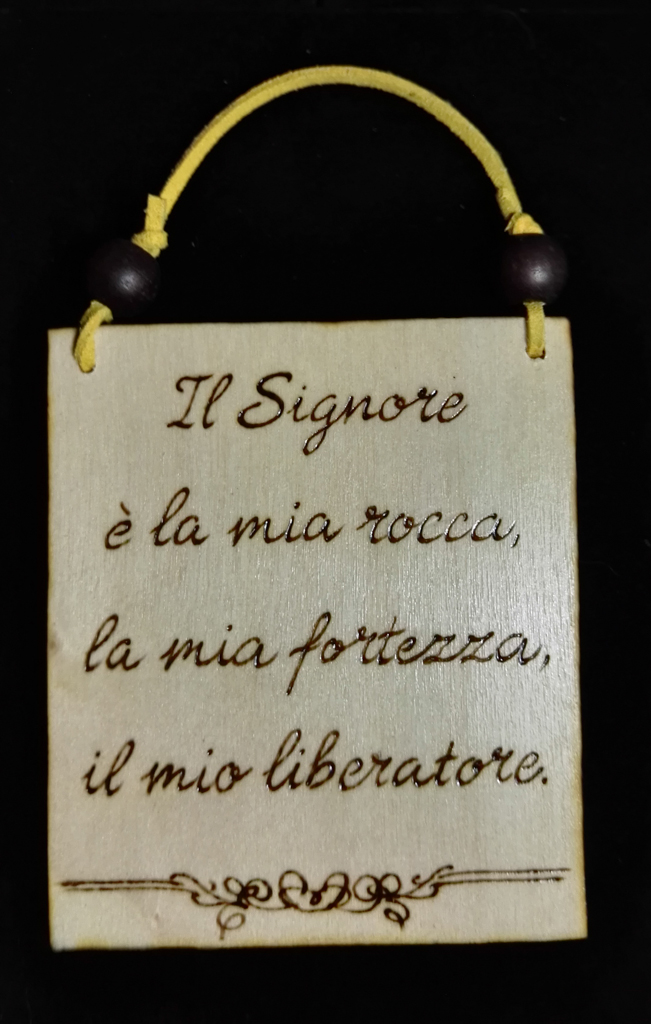 Il Signore
è la mia rocca,
la mia fortezza,
il mio liberatore.